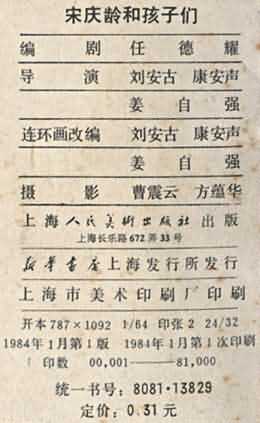 宋庆龄和孩子们
编 剧 任 德 耀
导 演 刘安古 康安声
姜 自 强
连环画改编 刘安古 康安声
姜 自 强
摄 影 曹震云 方蕴华
上海人民美術出版社 出版
上海长乐路672弄33号
新华書店上海发行所发行
上海市美术印刷厂印刷
开本787×1092 1/64 印张2 24/32
1984年1月第1版 1984年1月第1次印刷
印数 00,001——81,000
统一书号：8081·13829
定价：0.31元